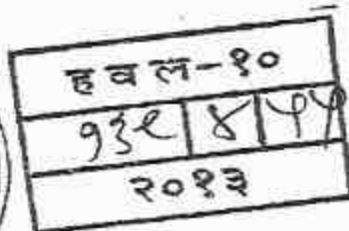 हवल-१०
१३९ ४ ५५
२०१३